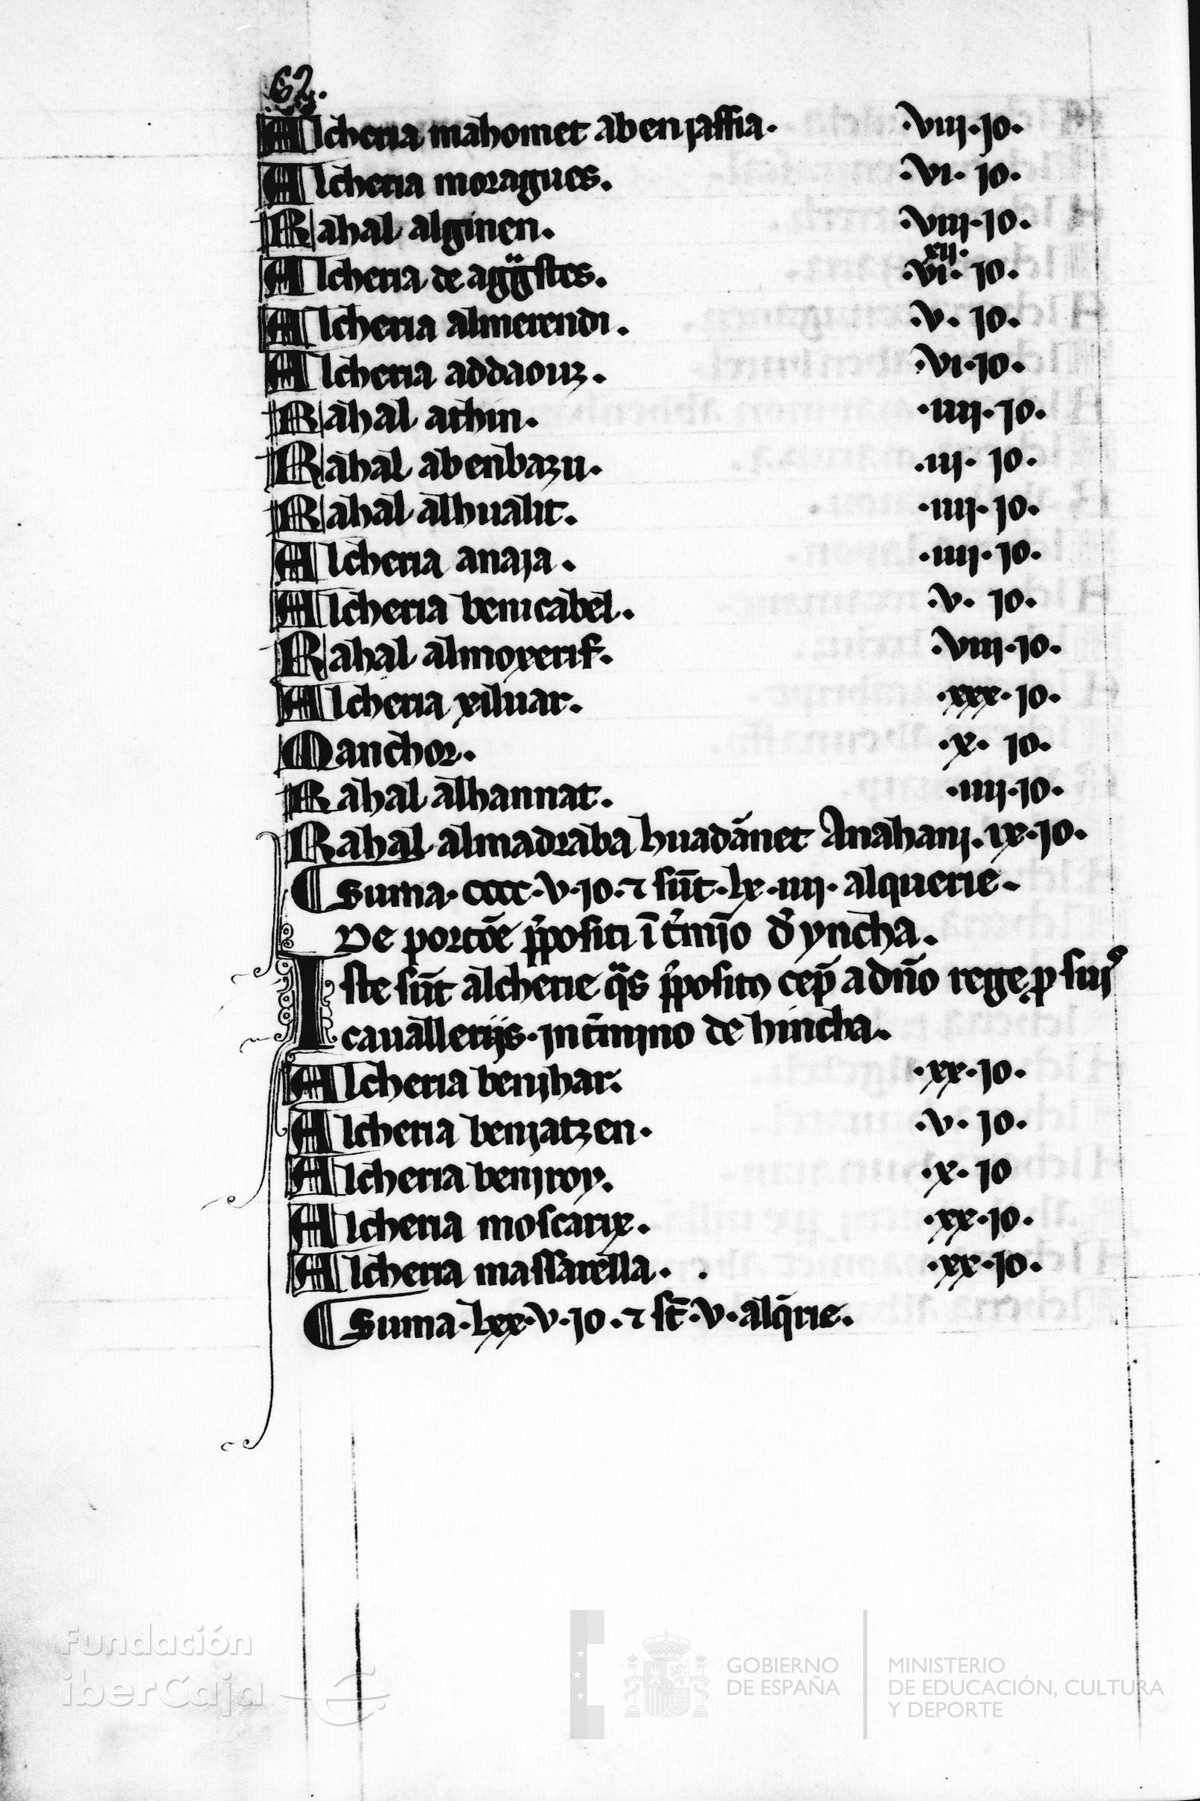 62.
Alcheria mahomet abenjaffia. .viij.jo.
Alcheria moragues. .vi. jo.
Rahal alginen. .viij.jo.
xij.
Alcheria de agüstes. .vi. jo.
Alcheria almerendi. .v. jo.
Alcheria addaouz. .vi.jo.
Rahal athin. .iiij.jo.
Rahal abenbazu. .iij. jo.
Rahal alhualit. .iiij.jo.
Alcheria anaja. .iiij.jo.
Alcheria benicabel. .v. jo.
Rahal almoxerif. .viij.jo.
Alcheria xiluar. .xxx.jo.
Manchor. .x. jo.
Rahal alhannat. .iiij.jo.
Rahal almadraba huadānet Anahanj. ix.jo.
Suma.cccc.v.jo.⁊ sūt.lx.iiij. alquerie.
De portōe p̄positi ī t̄mīo d' yncha.
Iste sūt alcherie q̄s p̄positus cep̄ a dño rege p̱ suis
cauallerijs.in t̄mino de hincha.
Alcheria benjhar. .xx.jo.
Alcheria benjatzen. .v. jo.
Alcheria benjroy. .x. jo
Alcheria moscarix. .xx.jo.
Alcheria massarella. . .xx.jo.
Suma.lxx.v.jo.⁊ st̄.v.alq̄rie.
Fundación
iberCaja
GOBIERNO
DE ESPAÑA
MINISTERIO
DE EDUCACIÓN, CULTURA
Y DEPORTE